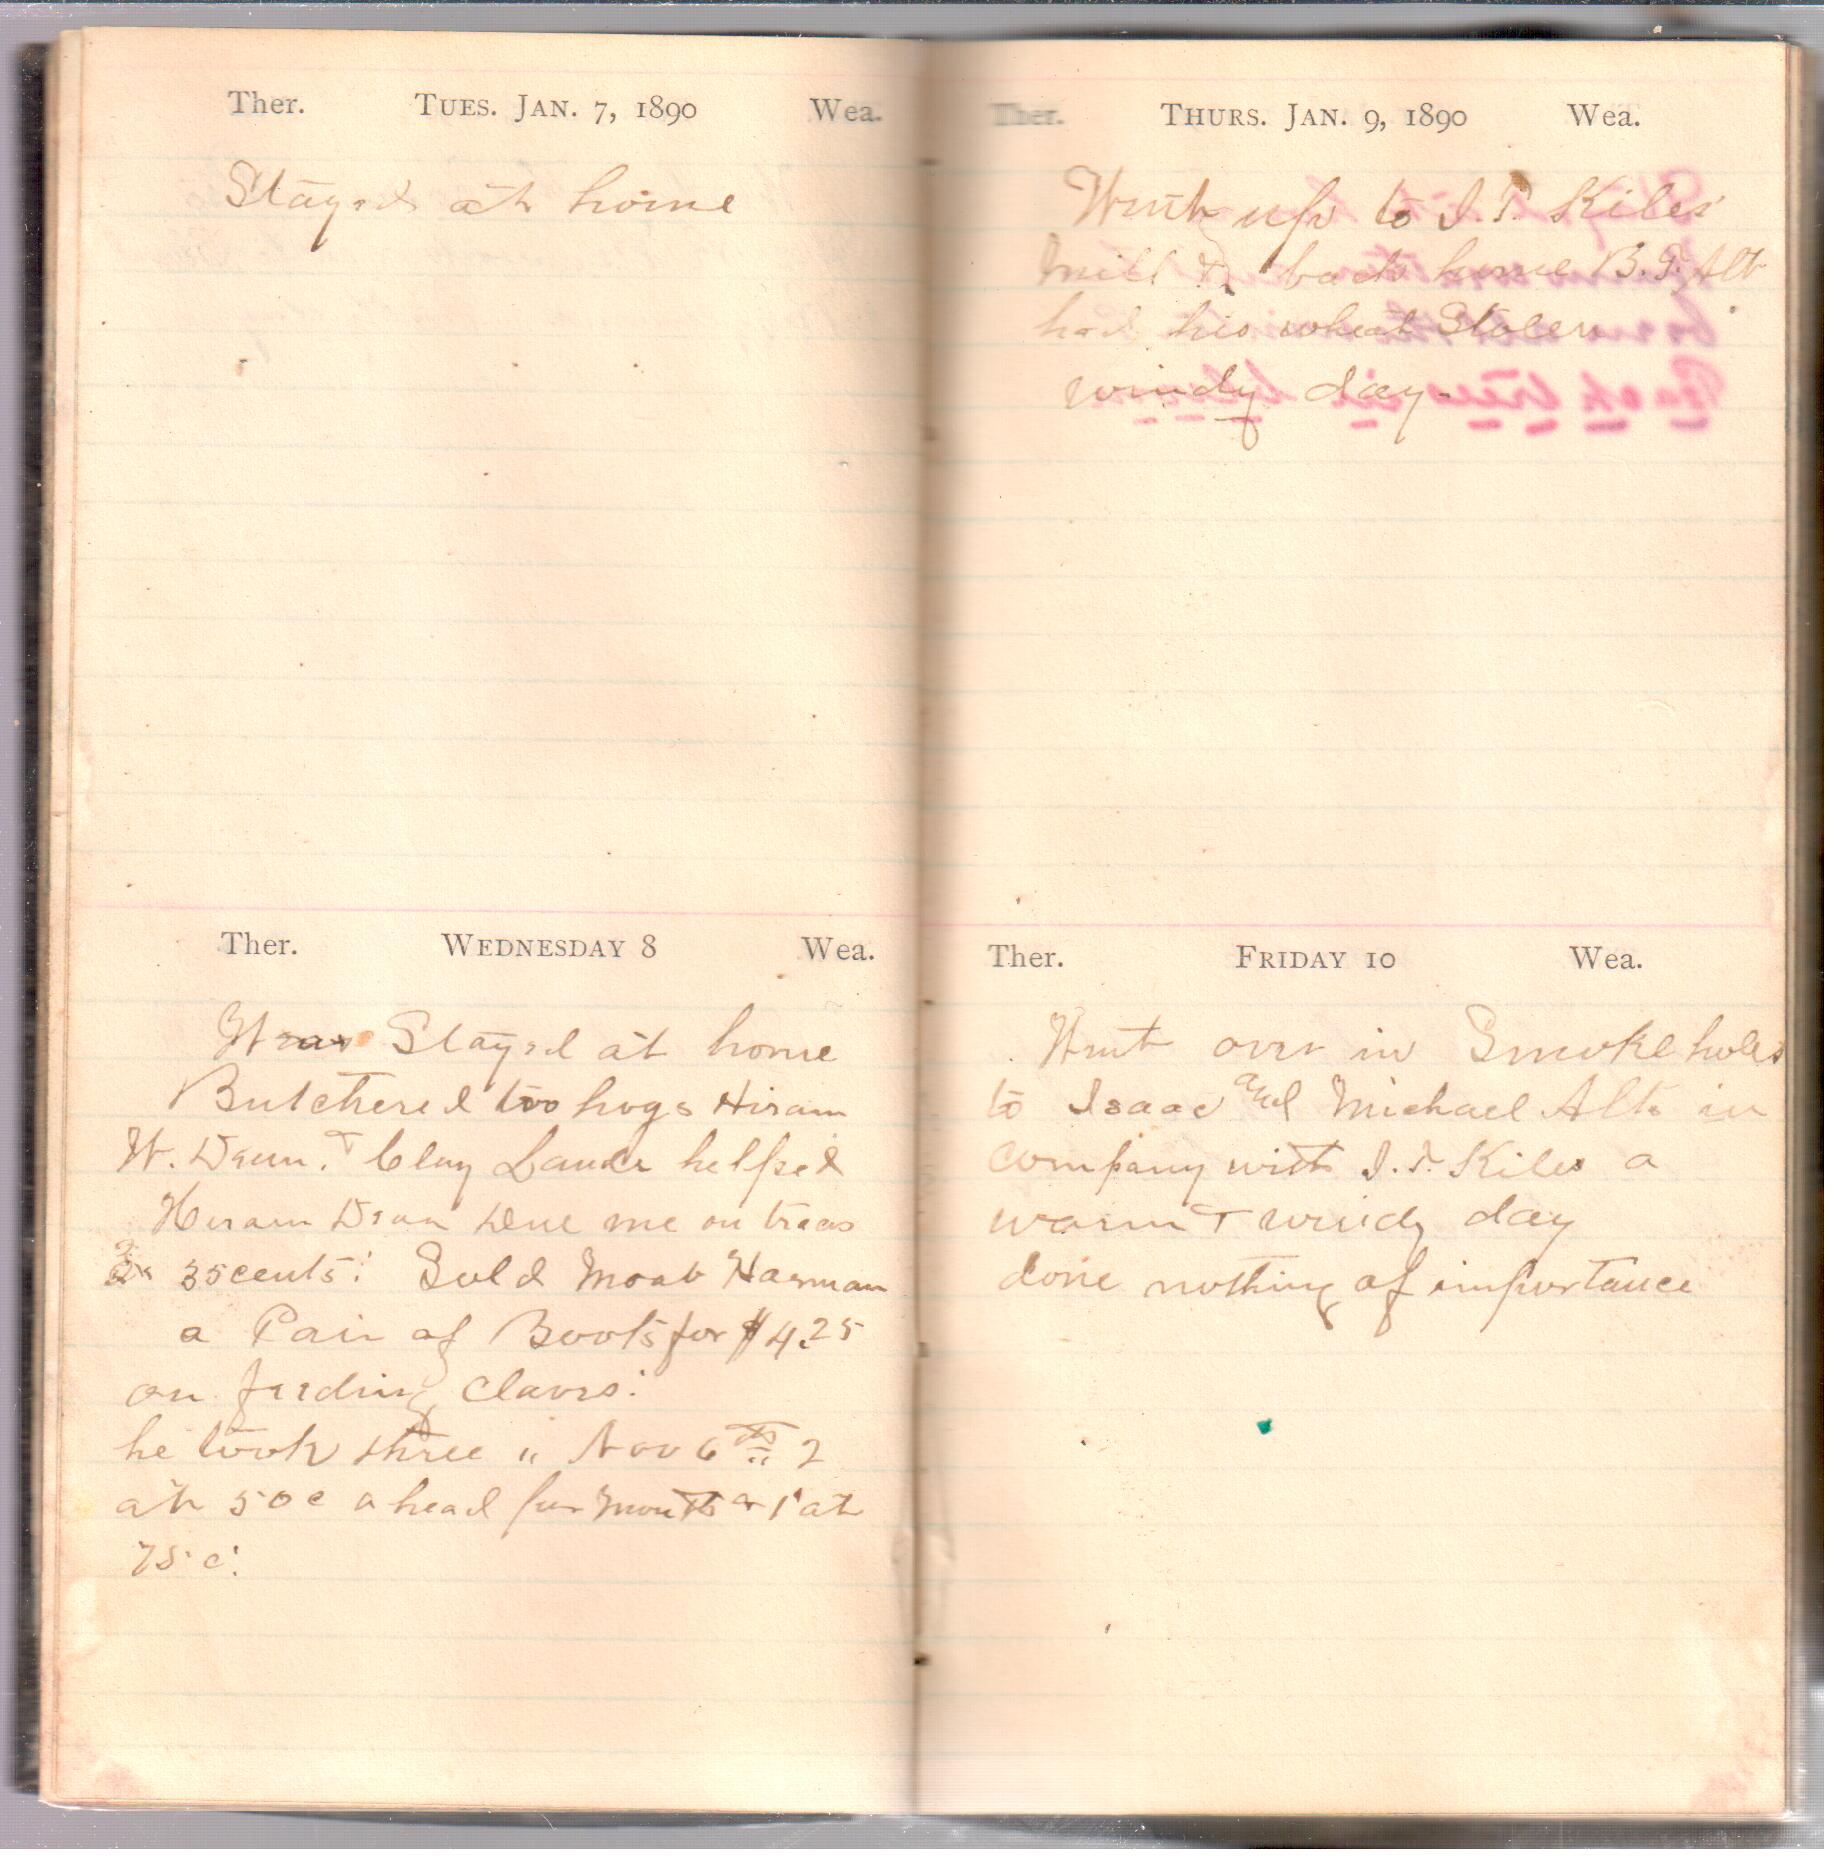 Ther. TUES. JAN. 7, 1890 Wea.
Stayed at home
Ther. WEDNESDAY 8 Wea.
Was Stayed at home
Butchered too hogs Hiram
W. Dean. & Clay Lauck helped
Hiram Dean Due me on
35 cents: Sold Moab Harman
a Pair of Boots for $4.25
on feeding
he took three " Nov 6th " 2
at 50c a head for month & 1 at
75 c:
Ther. THURS. JAN. 9, 1890 Wea.
Went up to I. T. Kiles
mill & back home B. F. Alt
had his wheat Stolen
windy day.
Ther. FRIDAY 10 Wea.
Went over in Smoke holes
to Isaac and Michael Alts in
company with I. T. Kiles a
warm & windy day
done nothing of importance